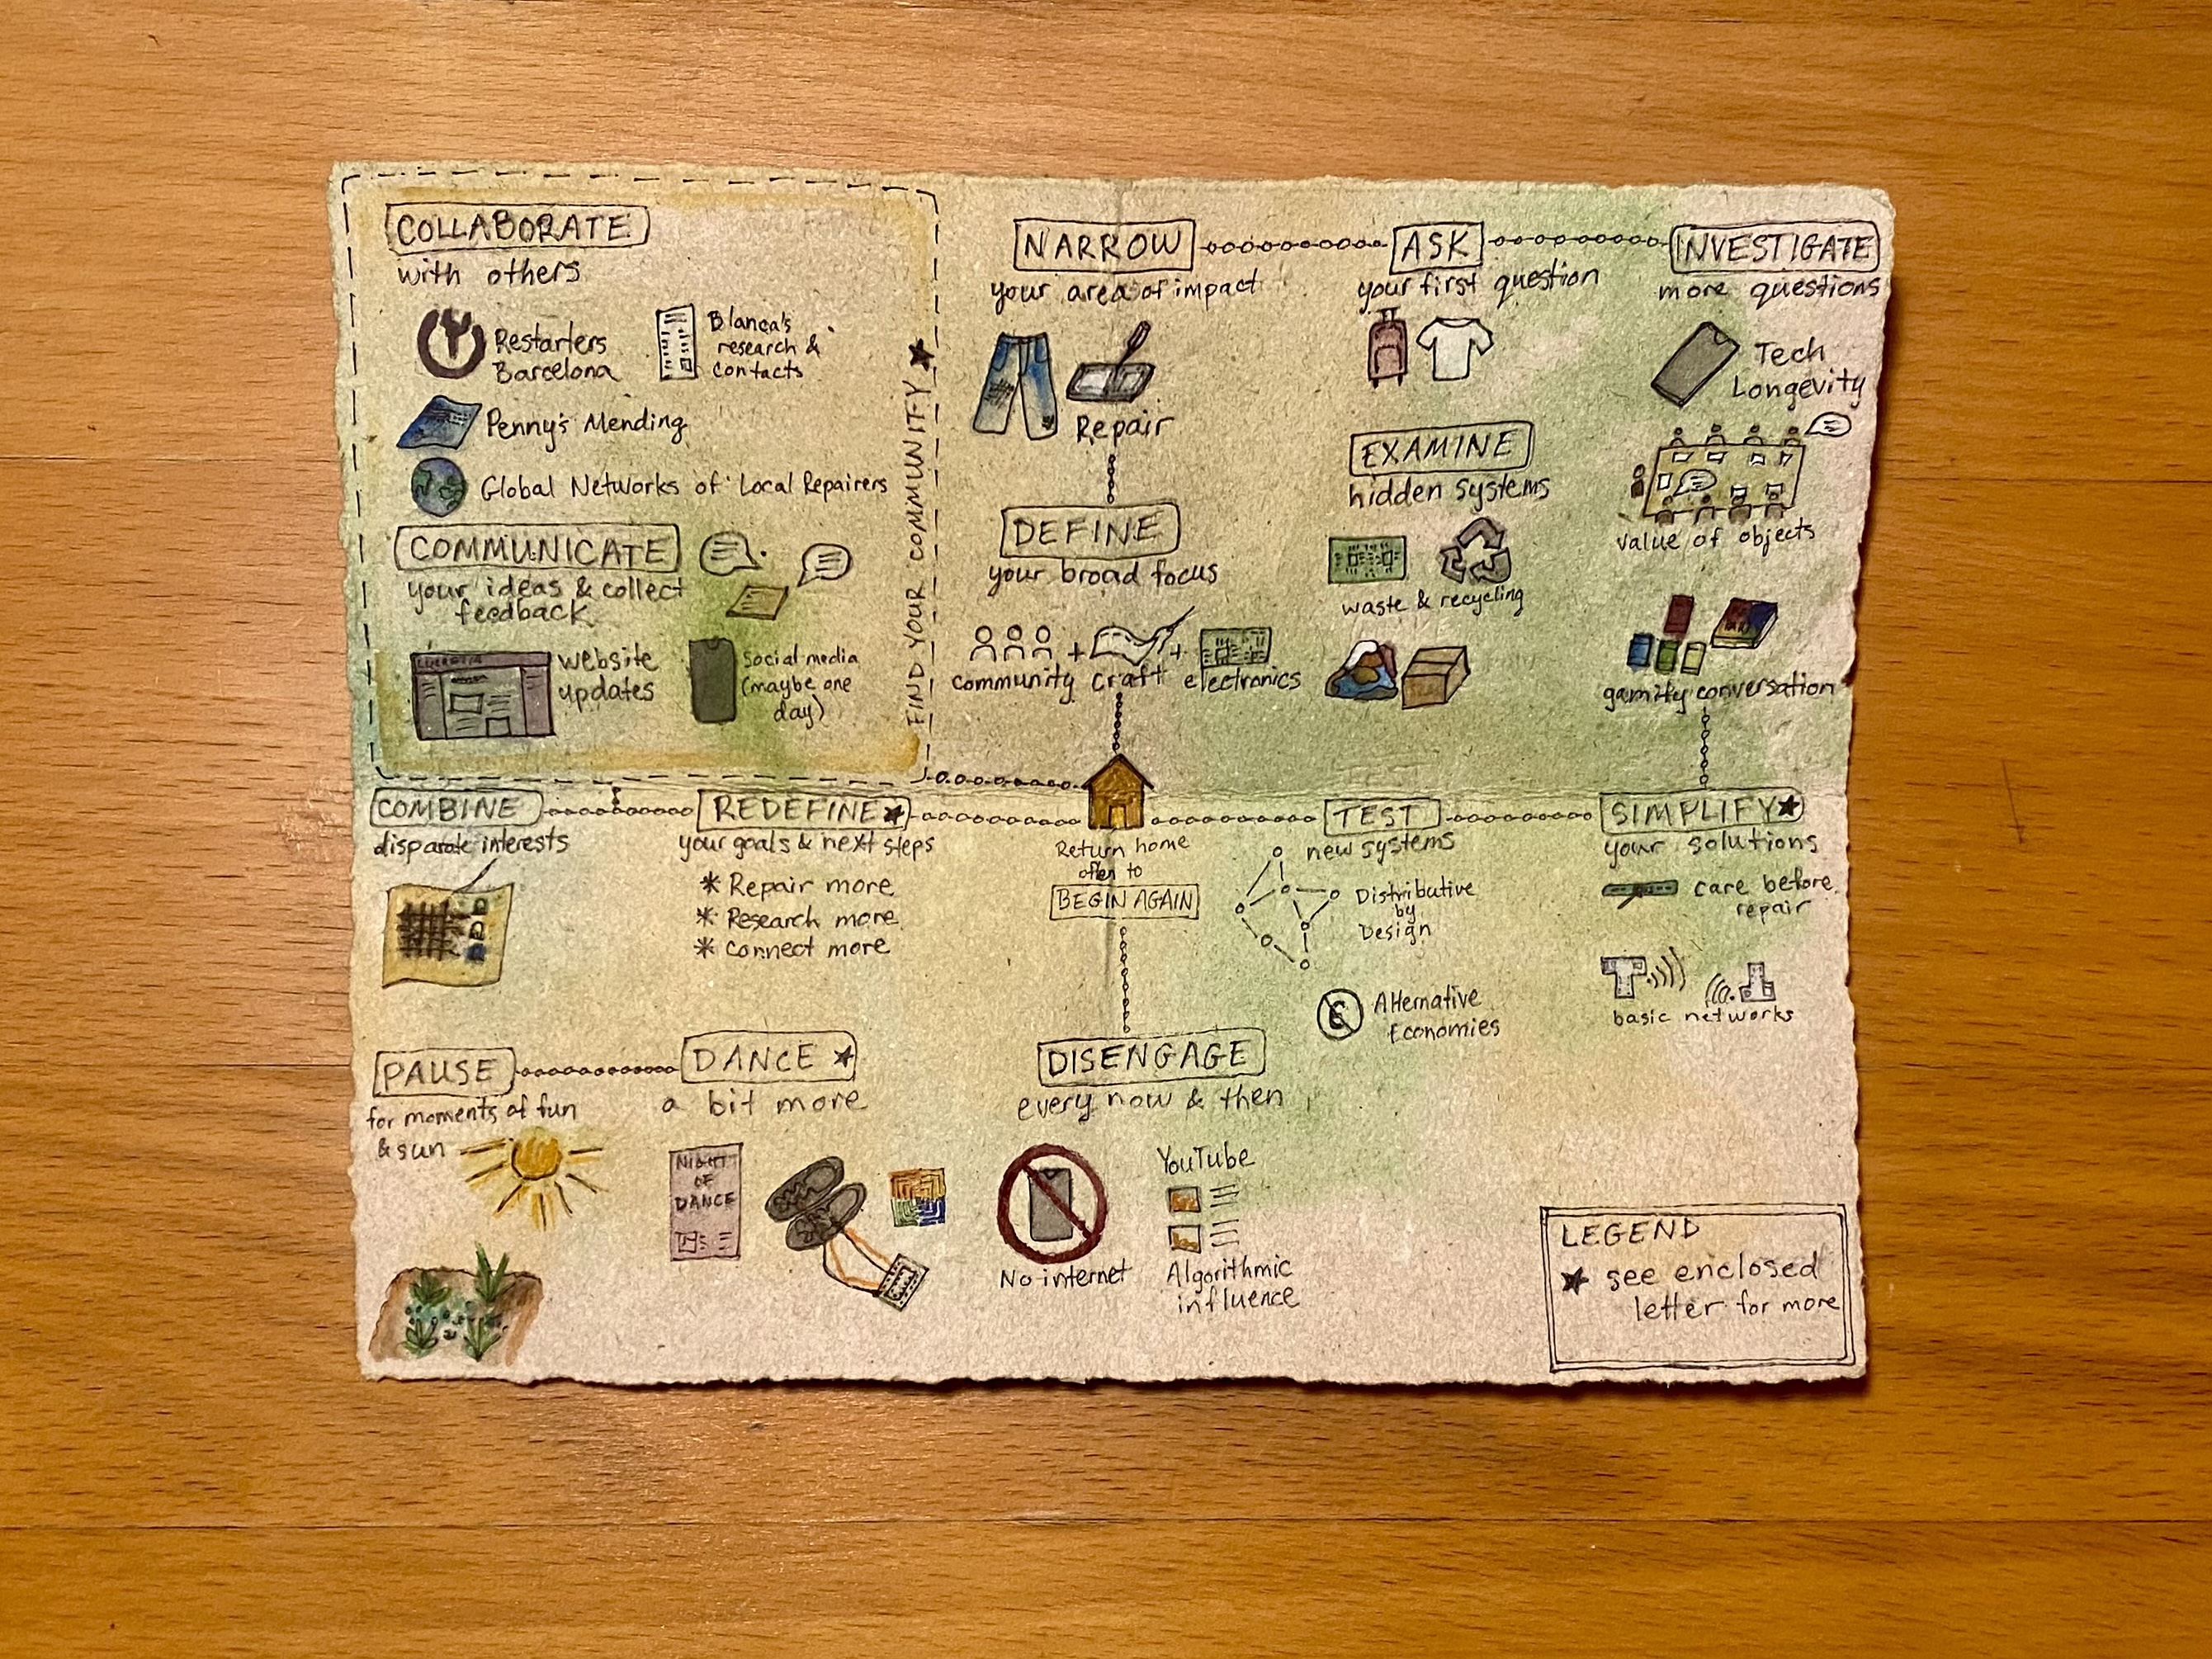 COLLABORATE
with others
Restarters
Barcelona
Blanca's
research &
contacts
Penny's Mending
Global Networks of Local Repairers
COMMUNICATE
your ideas & collect
feedback
website
updates
Social media
(maybe one
day)
FIND YOUR COMMUNITY
NARROW
your area of impact
Repair
DEFINE
your broad focus
community + craft + electronics
ASK
your first question
EXAMINE
hidden systems
waste & recycling
INVESTIGATE
more questions
Tech
Longevity
value of objects
gamify conversation
COMBINE
disparate interests
REDEFINE
your goals & next steps
* Repair more
* Research more
* Connect more
Return home
often to
BEGIN AGAIN
TEST
new systems
Distributive
by
Design
Alternative
Economies
SIMPLIFY
your solutions
care before
repair
basic networks
PAUSE
for moments of fun
& sun
DANCE
a bit more
NIGHT
OF
DANCE
DISENGAGE
every now & then
No internet
YouTube
Algorithmic
influence
LEGEND
★ see enclosed
letter for more